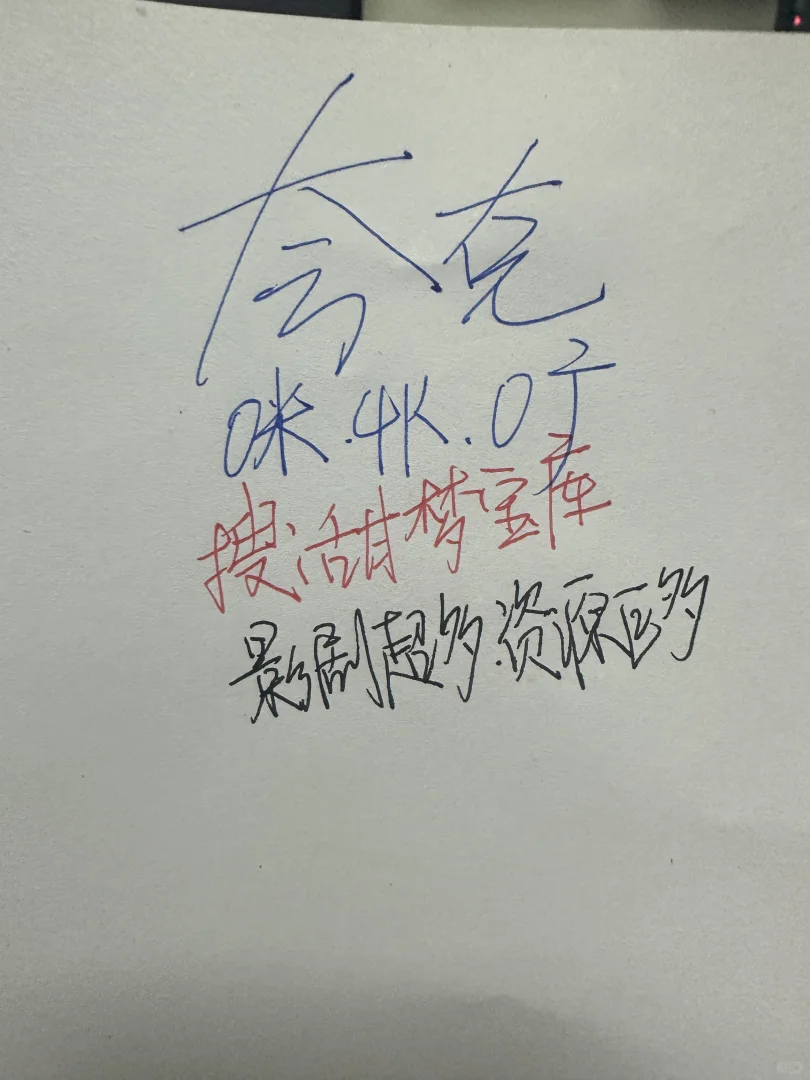 夸克
咪.4K.吖
搜:甜梦宝库
影剧超多.资源巨多